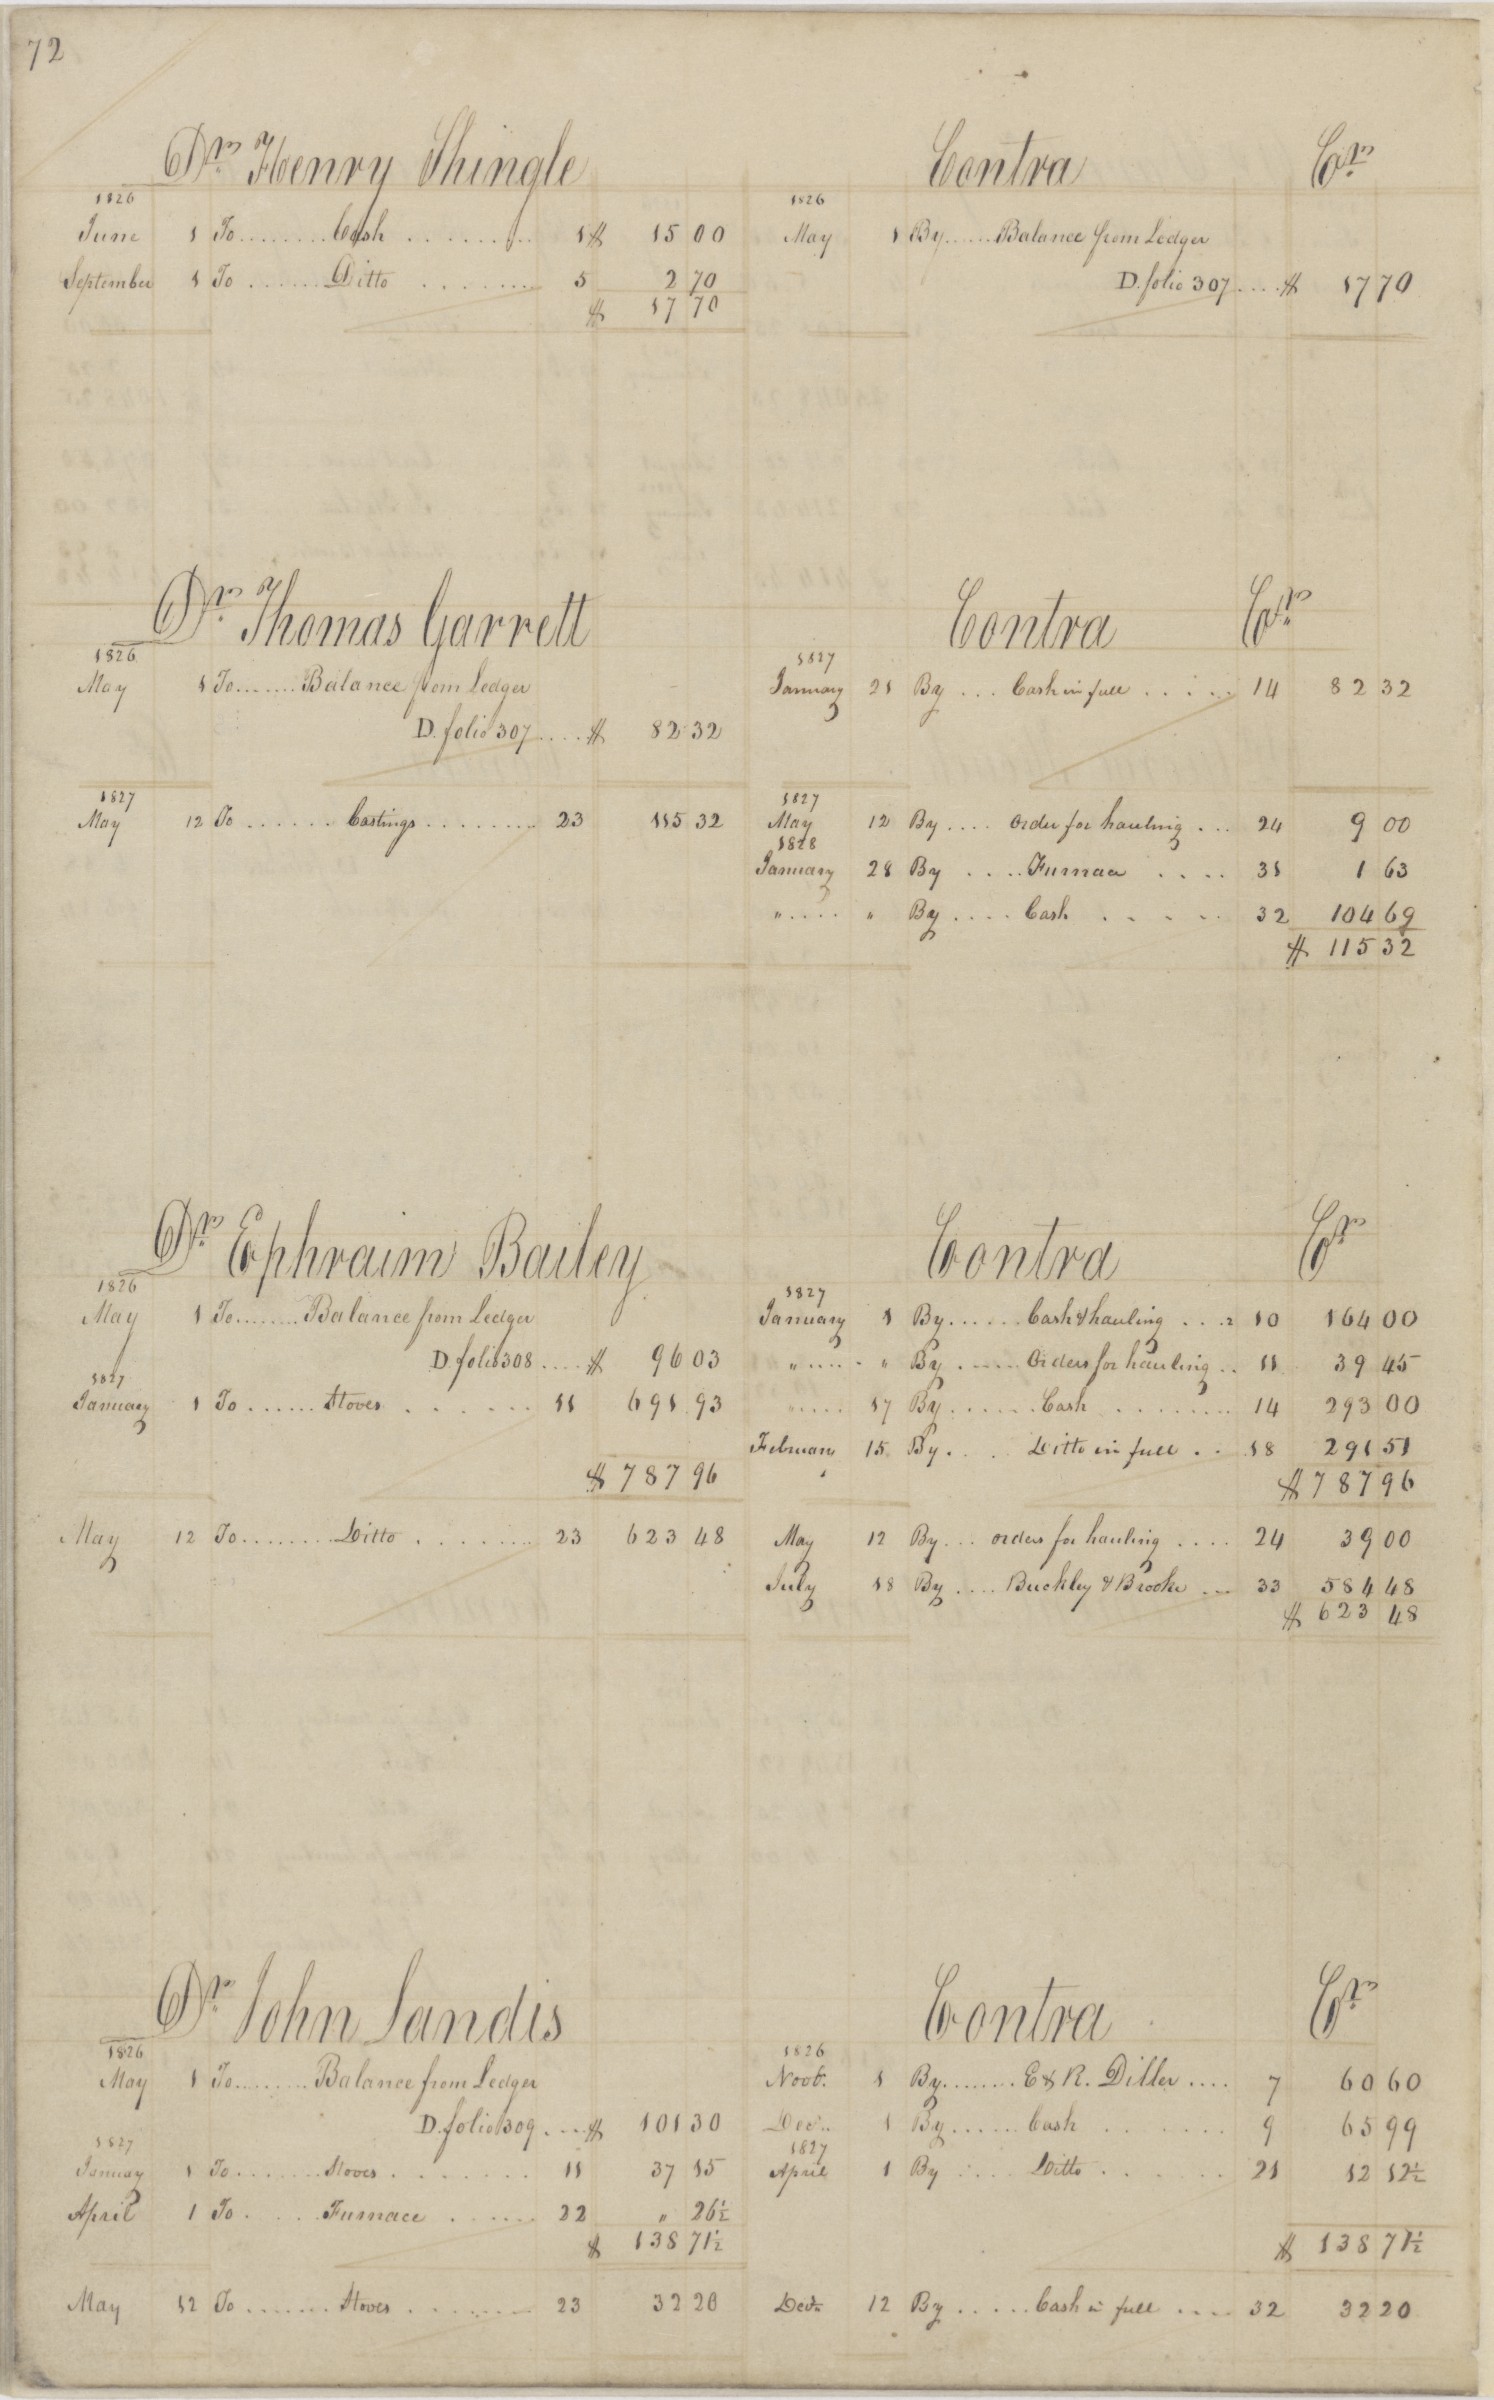 72
Dr Henry Shingle
1826
June 1 To ........ Cash ........ 1 $ 15 00
September 1 To ...... Ditto ........ 5 2 70
$ 17 70
Contra Cr
1826
May 1 By ..... Balance from Ledger
D. folio 307 .... $ 17 70
Dr Thomas Garrett
1826
May 1 To ....... Balance from Ledger
D. folio 307 .... $ 82 32
1827
May 12 To ...... Castings ........ 23 115 32
Contra Cr
1827
January 21 By ... Cash in full ..... 14 82 32
1827
May 12 By .... Order for hauling ... 24 9 00
1828
January 28 By .... Furnace .... 31 1 63
" .... " By .... Cash ..... 32 104 69
$ 115 32
Dr Ephraim Bailey
1826
May 1 To ....... Balance from Ledger
D. folio 308 .... $ 96 03
1827
January 1 To ...... Stoves ...... 11 691 93
$ 787 96
May 12 To ........ Ditto ....... 23 623 48
Contra Cr
1827
January 1 By ...... Cash & hauling .... 10 164 00
" ..... " By ..... Orders for hauling .. 11 39 45
" .... 17 By ...... Cash ........ 14 293 00
February 15 By .... Ditto in full .. 18 291 51
$ 787 96
May 12 By ... orders for hauling .... 24 39 00
July 18 By .... Buckley & Brooke ... 33 584 48
$ 623 48
Dr John Landis
1826
May 1 To ........ Balance from Ledger
D. folio 309 .... $ 101 30
1827
January 1 To ....... Stoves ....... 11 37 15
April 1 To .... Furnace ..... 22 " 26½
$ 138 71½
May 12 To ....... Stoves ....... 23 32 20
Contra Cr
1826
Novbr. 1 By ....... E & R. Diller .... 7 60 60
Decr. 1 By ...... Cash ....... 9 65 99
1827
April 1 By .... Ditto ...... 21 12 12½
$ 138 71½
Decr. 12 By ..... Cash in full .... 32 32 20